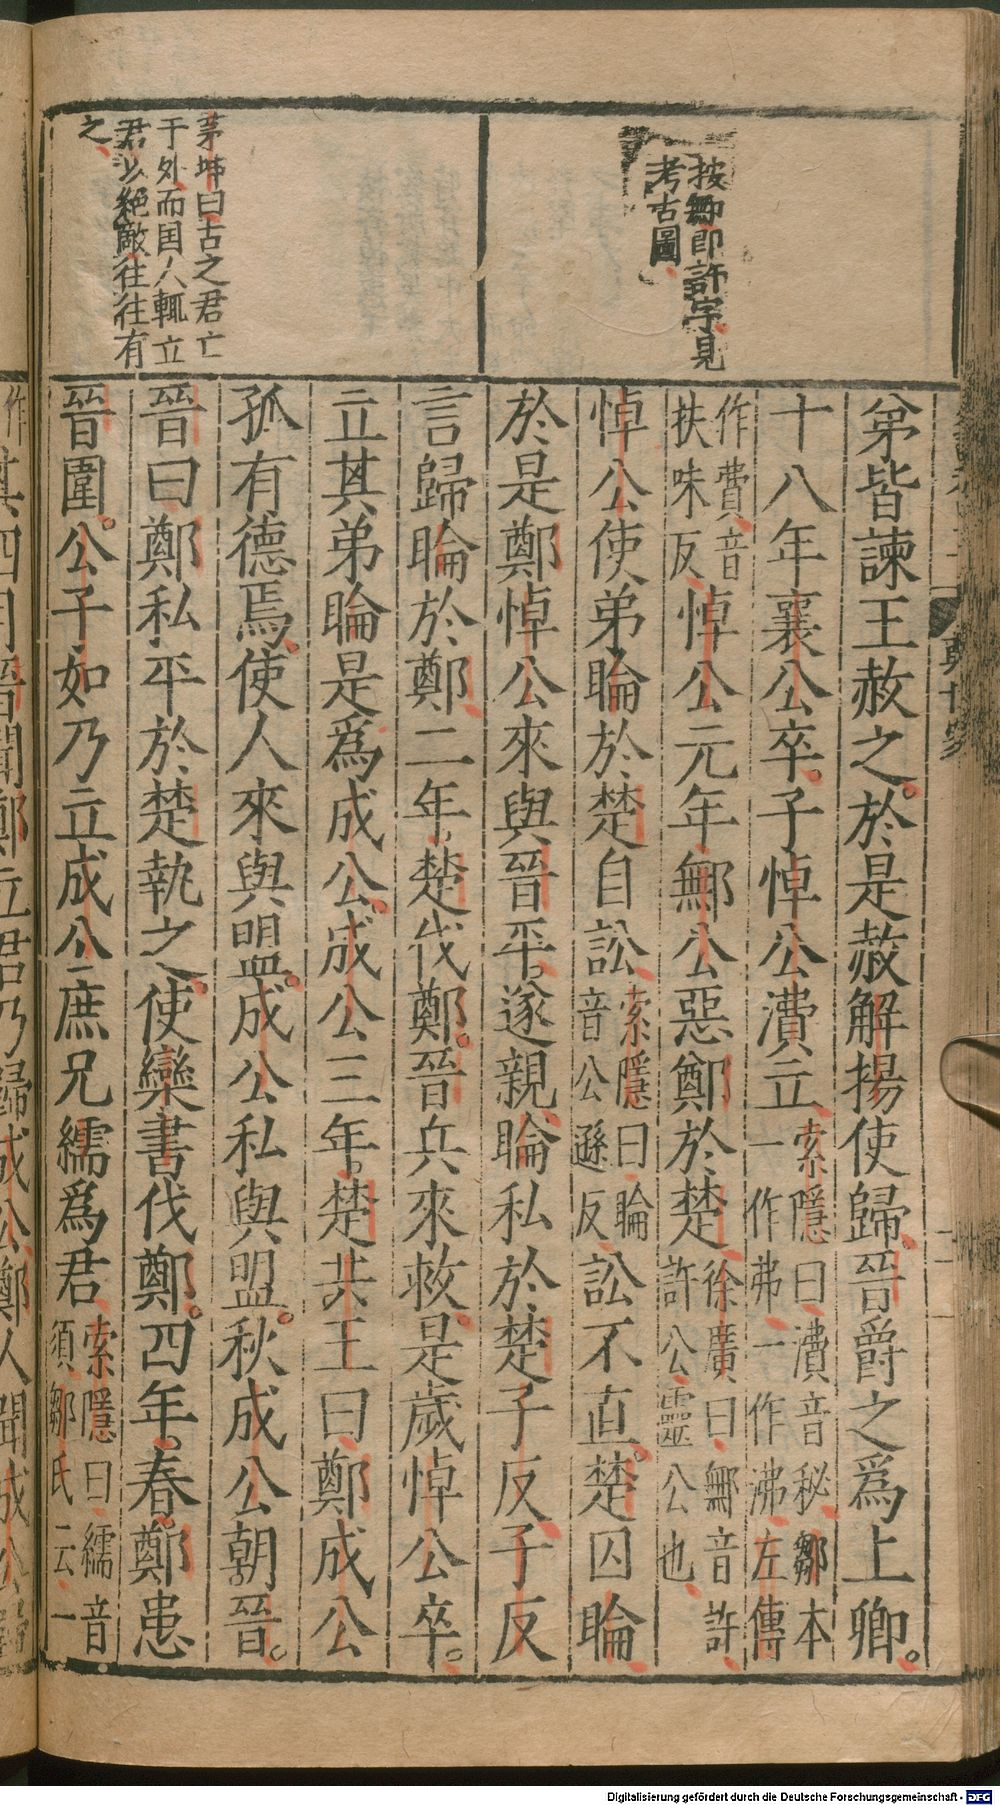 按鄦即許字見
考古圖
茅坤曰古之君亡
于外而国人輒立
君以絕敵往往有
之
弟皆諫王赦之於是赦解揚使歸晉爵之爲上卿
十八年襄公卒子悼公潰立索隱曰潰音秘鄒本一作弗一作沸左傳
作費音扶味反悼公元年鄦公惡鄭於楚徐廣曰鄦音許許公靈公也
悼公使弟睔於楚自訟索隱曰睔音公遜反訟不直楚囚睔
於是鄭悼公來與晉平遂親睔私於楚子反子反
言歸睔於鄭二年楚伐鄭晉兵來救是歲悼公卒
立其弟睔是爲成公成公三年楚共王曰鄭成公
孤有德焉使人來與盟成公私與盟秋成公朝晉
晉曰鄭私平於楚執之使欒書伐鄭四年春鄭患
晉圍公子如乃立成公庶兄繻爲君索隱曰繻音須鄒氏云一
鄭世家
作
其四月晉聞鄭立君乃歸成公鄭人聞成公
Digitalisierung gefördert durch die Deutsche Forschungsgemeinschaft - DFG